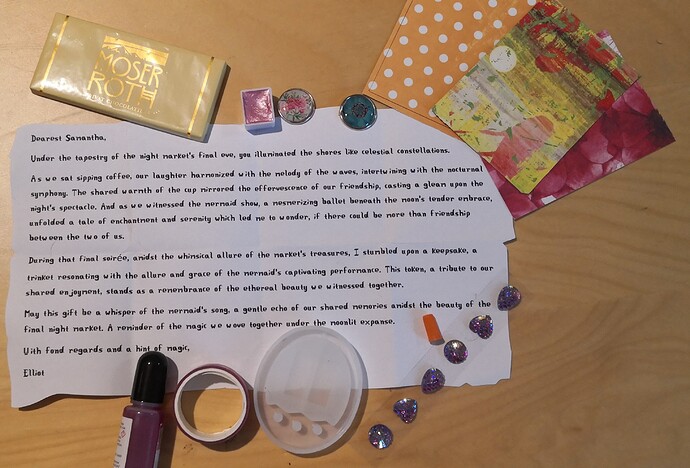 MOSER
ROTH
Dearest Samantha,
Under the tapestry of the night market's final eve, you illuminated the shores like celestial constellations.
As we sat sipping coffee, our laughter harmonized with the melody of the waves, intertwining with the nocturnal
symphony. The shared warmth of the cup mirrored the effervescence of our friendship, casting a gleam upon the
night's spectacle. And as we witnessed the mermaid show, a mesmerizing ballet beneath the moon's tender embrace,
unfolded a tale of enchantment and serenity which led me to wonder, if there could be more than friendship
between the two of us.
During that final soirée, amidst the whimsical allure of the market's treasures, I stumbled upon a keepsake, a
trinket resonating with the allure and grace of the mermaid's captivating performance. This token, a tribute to our
shared enjoyment, stands as a remembrance of the ethereal beauty we witnessed together.
May this gift be a whisper of the mermaid's song, a gentle echo of our shared memories amidst the beauty of the
final night market. A reminder of the magic we wove together under the moonlit expanse.
With fond regards and a hint of magic,
Elliot